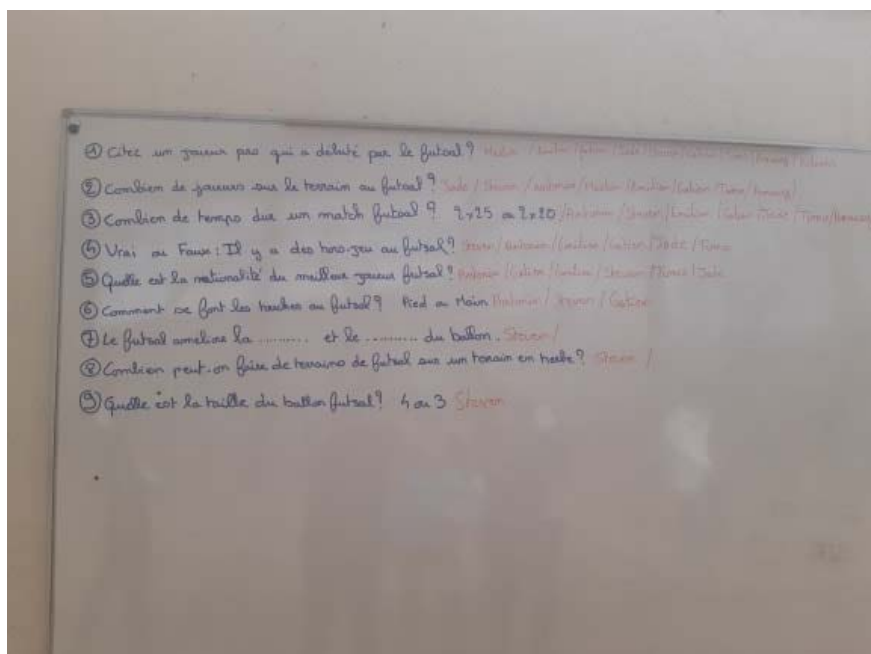 ① Citez un joueur pro qui a débuté par le futsal?
② Combien de joueurs sur le terrain au futsal? Jade / Steven / / / Emilien / Gatien / Timeo /
③ Combien de temps dure un match futsal? 2x25 ou 2x20 / / Steven / Emilien / Gatien / Jade / Timeo /
④ Vrai ou Faux: Il y a des hors-jeu au futsal? Steven / / Emilien / Gatien / Jade / Timeo
⑤ Quelle est la nationalité du meilleur joueur futsal? / Gatien / Emilien / Steven / Timeo / Jade
⑥ Comment se font les touches au futsal? Pied ou Main / Steven / Gatien
⑦ Le futsal améliore la .......... et le .......... du ballon. Steven /
⑧ Combien peut-on faire de terrains de futsal sur un terrain en herbe? Steven /
⑨ Quelle est la taille du ballon futsal? 4 ou 3 Steven